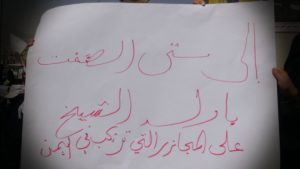 إلى متى الصمت
يا ولد الشيخ
على المجازر التي ترتكب في اليمن